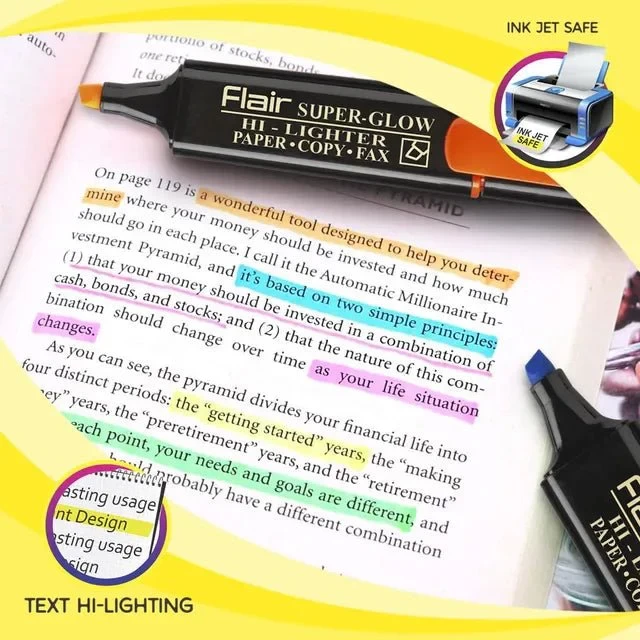 INK JET SAFE
auto-
portion of stocks, bonds,
one
It do
Flair SUPER-GLOW
HI - LIGHTER
PAPER • COPY • FAX
INK JET
SAFE
PYRAMID
On page 119 is a wonderful tool designed to help you deter-
mine where your money should be invested and how much
should go in each place. I call it the Automatic Millionaire In-
vestment Pyramid, and it's based on two simple principles:
(1) that your money should be invested in a combination of
cash, bonds, and stocks; and (2) that the nature of this com-
bination should change over time as your life situation
changes.
As you can see, the pyramid divides your financial life into
four distinct periods: the "getting started" years, the "making
ney" years, the "preretirement" years, and the "retirement"
each point, your needs and goals are different, and
probably have a different combination
Flair
HI - L
PAPER • CO
asting usage
nt Design
sting usage
sign
TEXT HI-LIGHTING